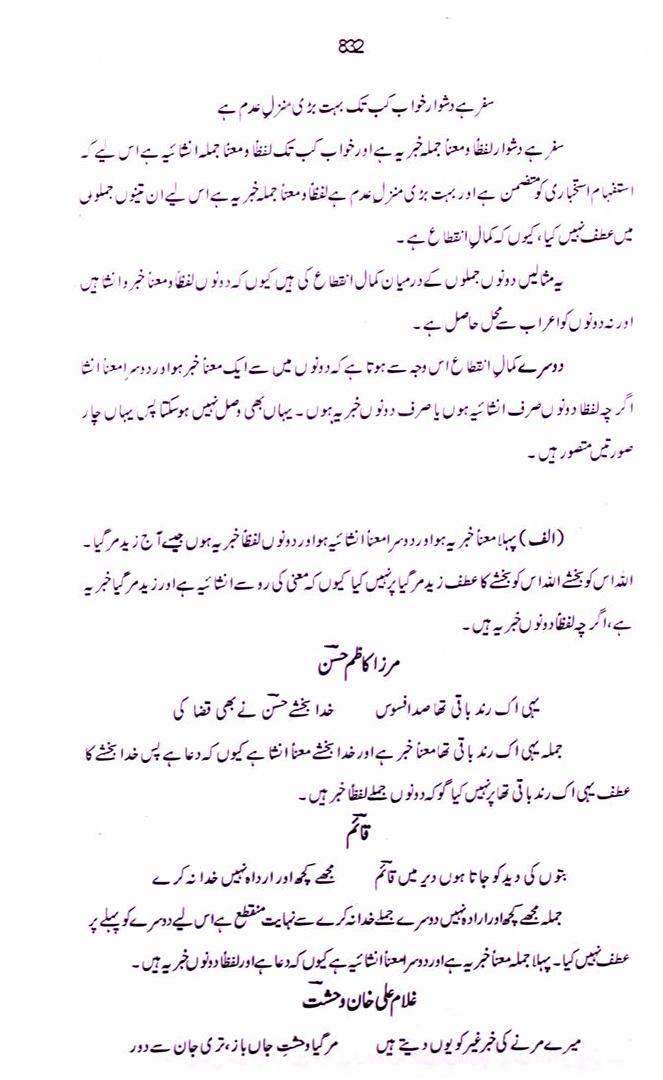 832
سفر ہے دشوار خواب کب تک بہت بڑی منزلِ عدم ہے
سفر ہے دشوار لفظاً و معناً جملہ خبریہ ہے اور خواب کب تک لفظاً و معناً جملہ انشائیہ ہے اس لیے کہ
استفہام استخباری کو متضمن ہے اور بہت بڑی منزل عدم ہے لفظاً و معناً جملہ خبریہ ہے اس لیے ان تینوں جملوں
میں عطف نہیں کیا، کیوں کہ کمالِ انقطاع ہے۔
یہ مثالیں دونوں جملوں کے درمیان کمال انقطاع کی ہیں کیوں کہ دونوں لفظاً و معناً خبر و انشا ہیں
اور نہ دونوں کو اعراب سے محل حاصل ہے۔
دوسرے کمالِ انقطاع اس وجہ سے ہوتا ہے کہ دونوں میں سے ایک معناً خبر ہو اور دوسرا معناً انشا
اگرچہ لفظاً دونوں صرف انشائیہ ہوں یا صرف دونوں خبریہ ہوں۔ یہاں بھی وصل نہیں ہو سکتا پس یہاں چار
صورتیں متصور ہیں۔
(الف) پہلا معناً خبریہ ہو اور دوسرا معناً انشائیہ ہو اور دونوں لفظاً خبریہ ہوں جیسے آج زید مر گیا۔
اللہ اس کو بخشے اللہ اس کو بخشے کا عطف زید مر گیا پر نہیں کیا کیوں کہ معنی کی رو سے انشائیہ ہے اور زید مر گیا خبریہ
ہے، اگرچہ لفظاً دونوں خبریہ ہیں۔
مرزا کاظم حسنؔ
یہی اک رند باقی تھا صد افسوس خدا بخشے حسنؔ نے بھی قضا کی
جملہ یہی اک رند باقی تھا معناً خبر ہے اور خدا بخشے معناً انشا ہے کیوں کہ دعا ہے پس خدا بخشے کا
عطف یہی اک رند باقی تھا پر نہیں کیا گو کہ دونوں جملے لفظاً خبر ہیں۔
قائمؔ
بتوں کی دید کو جاتا ہوں دیر میں قائمؔ مجھے کچھ اور ارداہ نہیں خدا نہ کرے
جملہ مجھے کچھ اور ارادہ نہیں دوسرے جملے خدا نہ کرے سے نہایت منقطع ہے اس لیے دوسرے کو پہلے پر
عطف نہیں کیا۔ پہلا جملہ معناً خبریہ ہے اور دوسرا معناً انشائیہ ہے کیوں کہ دعا ہے اور لفظاً دونوں خبریہ ہیں۔
غلام علی خان وحشتؔ
میرے مرنے کی خبر غیر کو یوں دیتے ہیں مر گیا وحشتِ جاں باز، تری جان سے دور